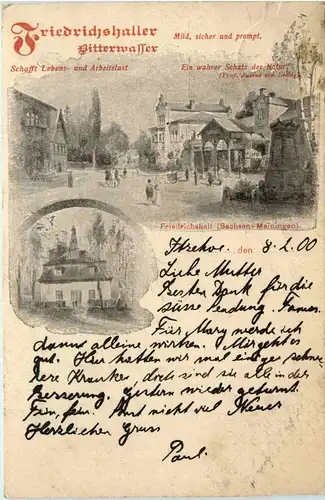 Friedrichshaller
Bitterwasser
Mild, sicher und prompt.
Schafft Lebens- und Arbeitslust
Ein wahrer Schatz der Natur!
(Prof. Justus von Liebig)
Friedrichshall (Sachsen-Meiningen)
den 8.2.00
Liebe Mutter
Besten Dank für die
süsse Sendung.
Für Mary werde ich
danns alleine wirken. Mir geht es
gut. Hier hatten wir mal einige schwe-
rere Kranke, doch sind sie alle in der
Besserung. Gestern wieder geturnt.
Fein, fein. Sonst nicht viel Neues
Herzlichen Gruss
Paul.